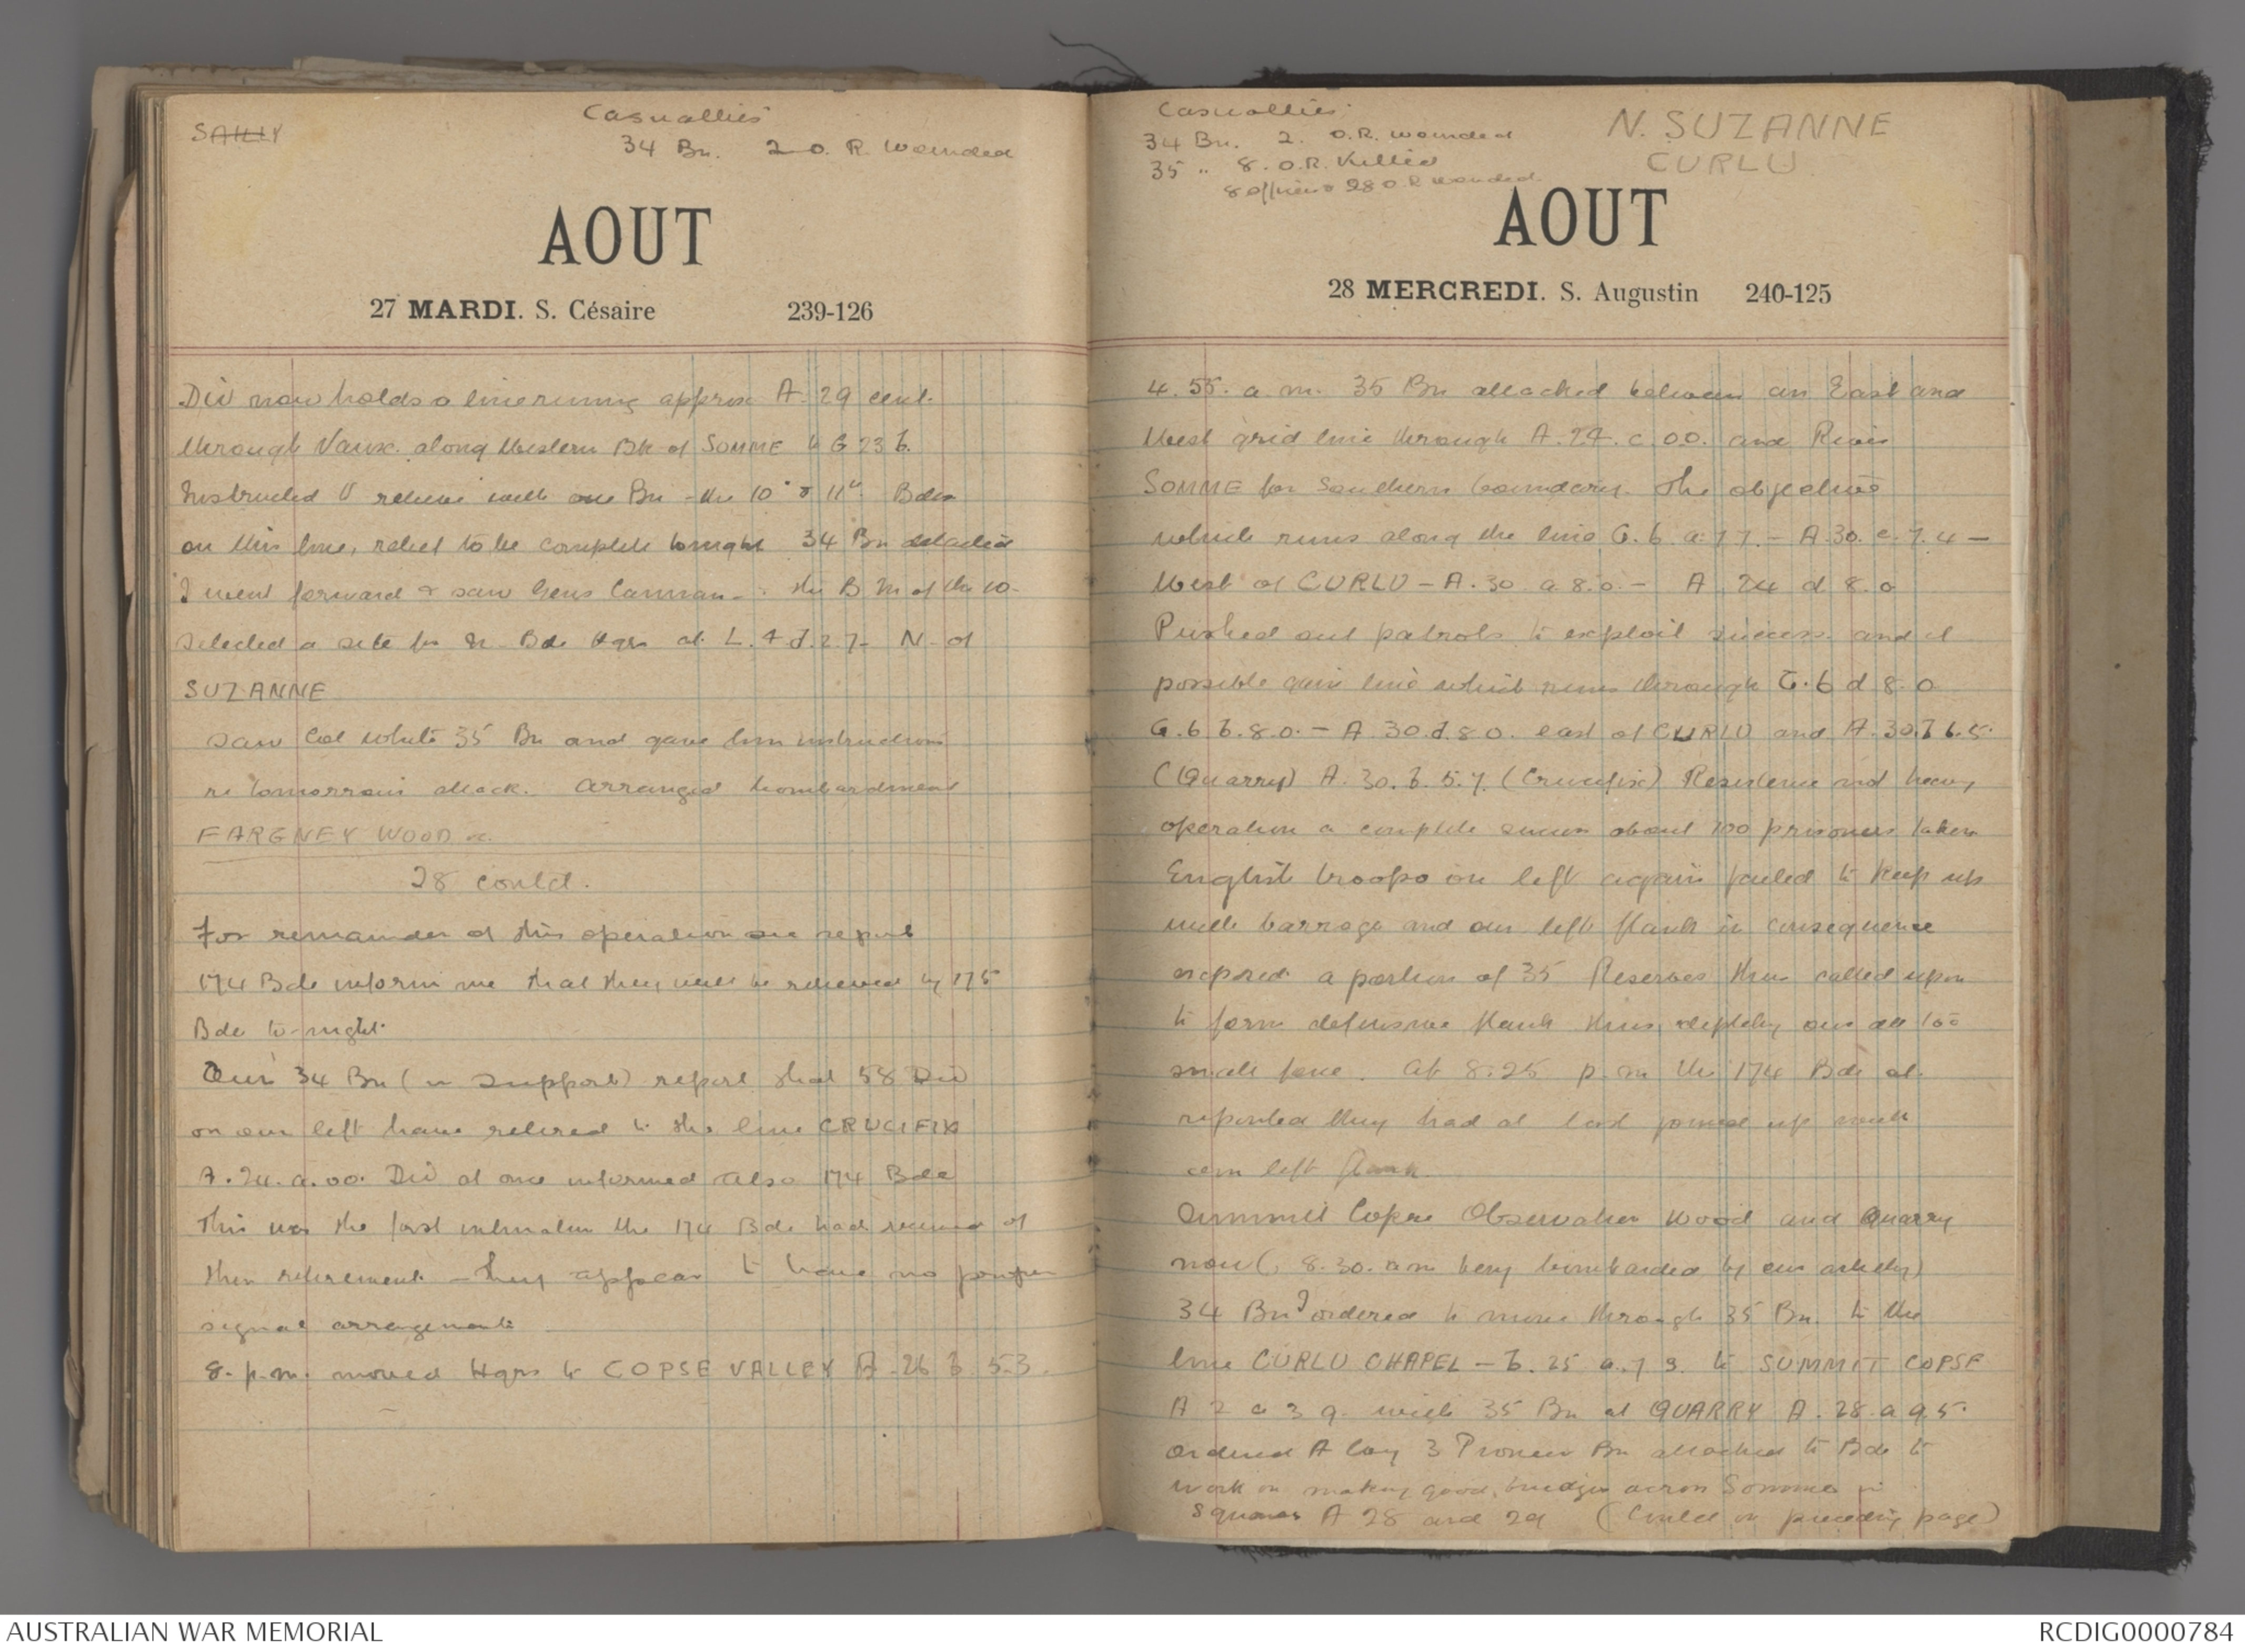 SAILLY
Casualties
34 Bn. 2 O.R. Wounded
AOUT
27 MARDI. S. Césaire 239-126
Div now holds a line running approx A. 29 cent.
through Vaux. along Western Bk of SOMME to G 23 b.
Instructed to relieve with one Bn - the 10" & 11th Bdes
on this line, relief to be complete tonight 34 Bn detailed
I went forward & saw Gens Cannan - the B M of the 10 -
selected a site for Bde Hqrs at L. 4. d. 2. 7 - N. of
SUZANNE
Saw Col White 35 Bn and gave him instructions
re tomorrows attack. Arranged bombardment
FARGNEY WOOD &c.
28 contd.
For remainder of this operation see report
174 Bde inform me that they will be relieved by 175
Bde to-night.
Our 34 Bn (in support) report that 58 Div
on our left have retired to the line CRUCIFIX
A. 24. a. 00. Div at once informed also 174 Bde
This was the first intimation the 174 Bde had received of
their retirement - they appear to have no
signal arrangements
8. p.m. moved Hqrs to COPSE VALLEY A. 26 b 5.3.
Casualties.
34 Bn. 2. O.R. wounded
35 " 8. O.R. Killed
8 officers 28 O.R wounded.
N. SUZANNE
CURLU
AOUT
28 MERCREDI. S. Augustin 240-125
4.55. a.m. 35 Bn attacked between an East and
West grid line through A. 24. c. 00. and River
SOMME for Southern boundary. The objective
which runs along the line G. 6 a. 77. - A. 30. c. 7. 4 -
West of CURLU - A. 30. a. 8. 0. - A. 24 d 8. 0
Pushed out patrols to exploit success and if
possible gain line which runs through G. 6 d 8. 0
G. 6 b. 8. 0. - A 30. d. 8 0. east of CURLU and A. 30. b 6. 5.
(Quarry) A. 30. b. 5. 7. (Crucifix) Resistence not heavy
operation a complete success about 100 prisoners taken
English troops on left again failed to keep up
with barrage and our left flank in consequence
exposed a portion of 35 Reserves thus called upon
to form defensive flank thus depleting our all too
small force. At 8.25 p.m the 174 Bde at
reported they had at last joined up with
our left flank.
Summit Copse Observation Wood and Quarry
now (8.30. a.m being bombarded by our artillery)
34 Bn ordered to move through 35 Bn. to the
line CURLU CHAPEL - B. 25 a. 7 9. to SUMMIT COPSE
A 2 a 3 9. with 35 Bn at QUARRY A. 28. a 9 5.
Ordered A Coy 3 Pioneer Bn attached to Bde to
work on making good, bridges across Somme in
Squares A 28 and 29 (Contd on preceding page)
AUSTRALIAN WAR MEMORIAL
RCDIG0000784